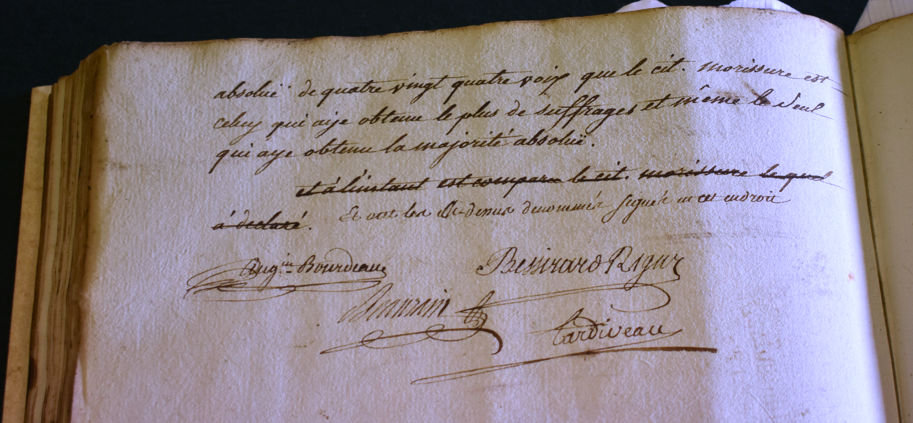 absoluë de quatre vingt quatre voix que le cit. morissure est
celuy qui aije obtenu le plus de suffrages et même le seul
qui aye obtenu la majorité absoluë.
et à l'instant est comparu le cit. morissure le quel
à declaré. Et ont les sus denommés signés en cet endroit
Bourdeau
Besnard Rigur
Tardiveau